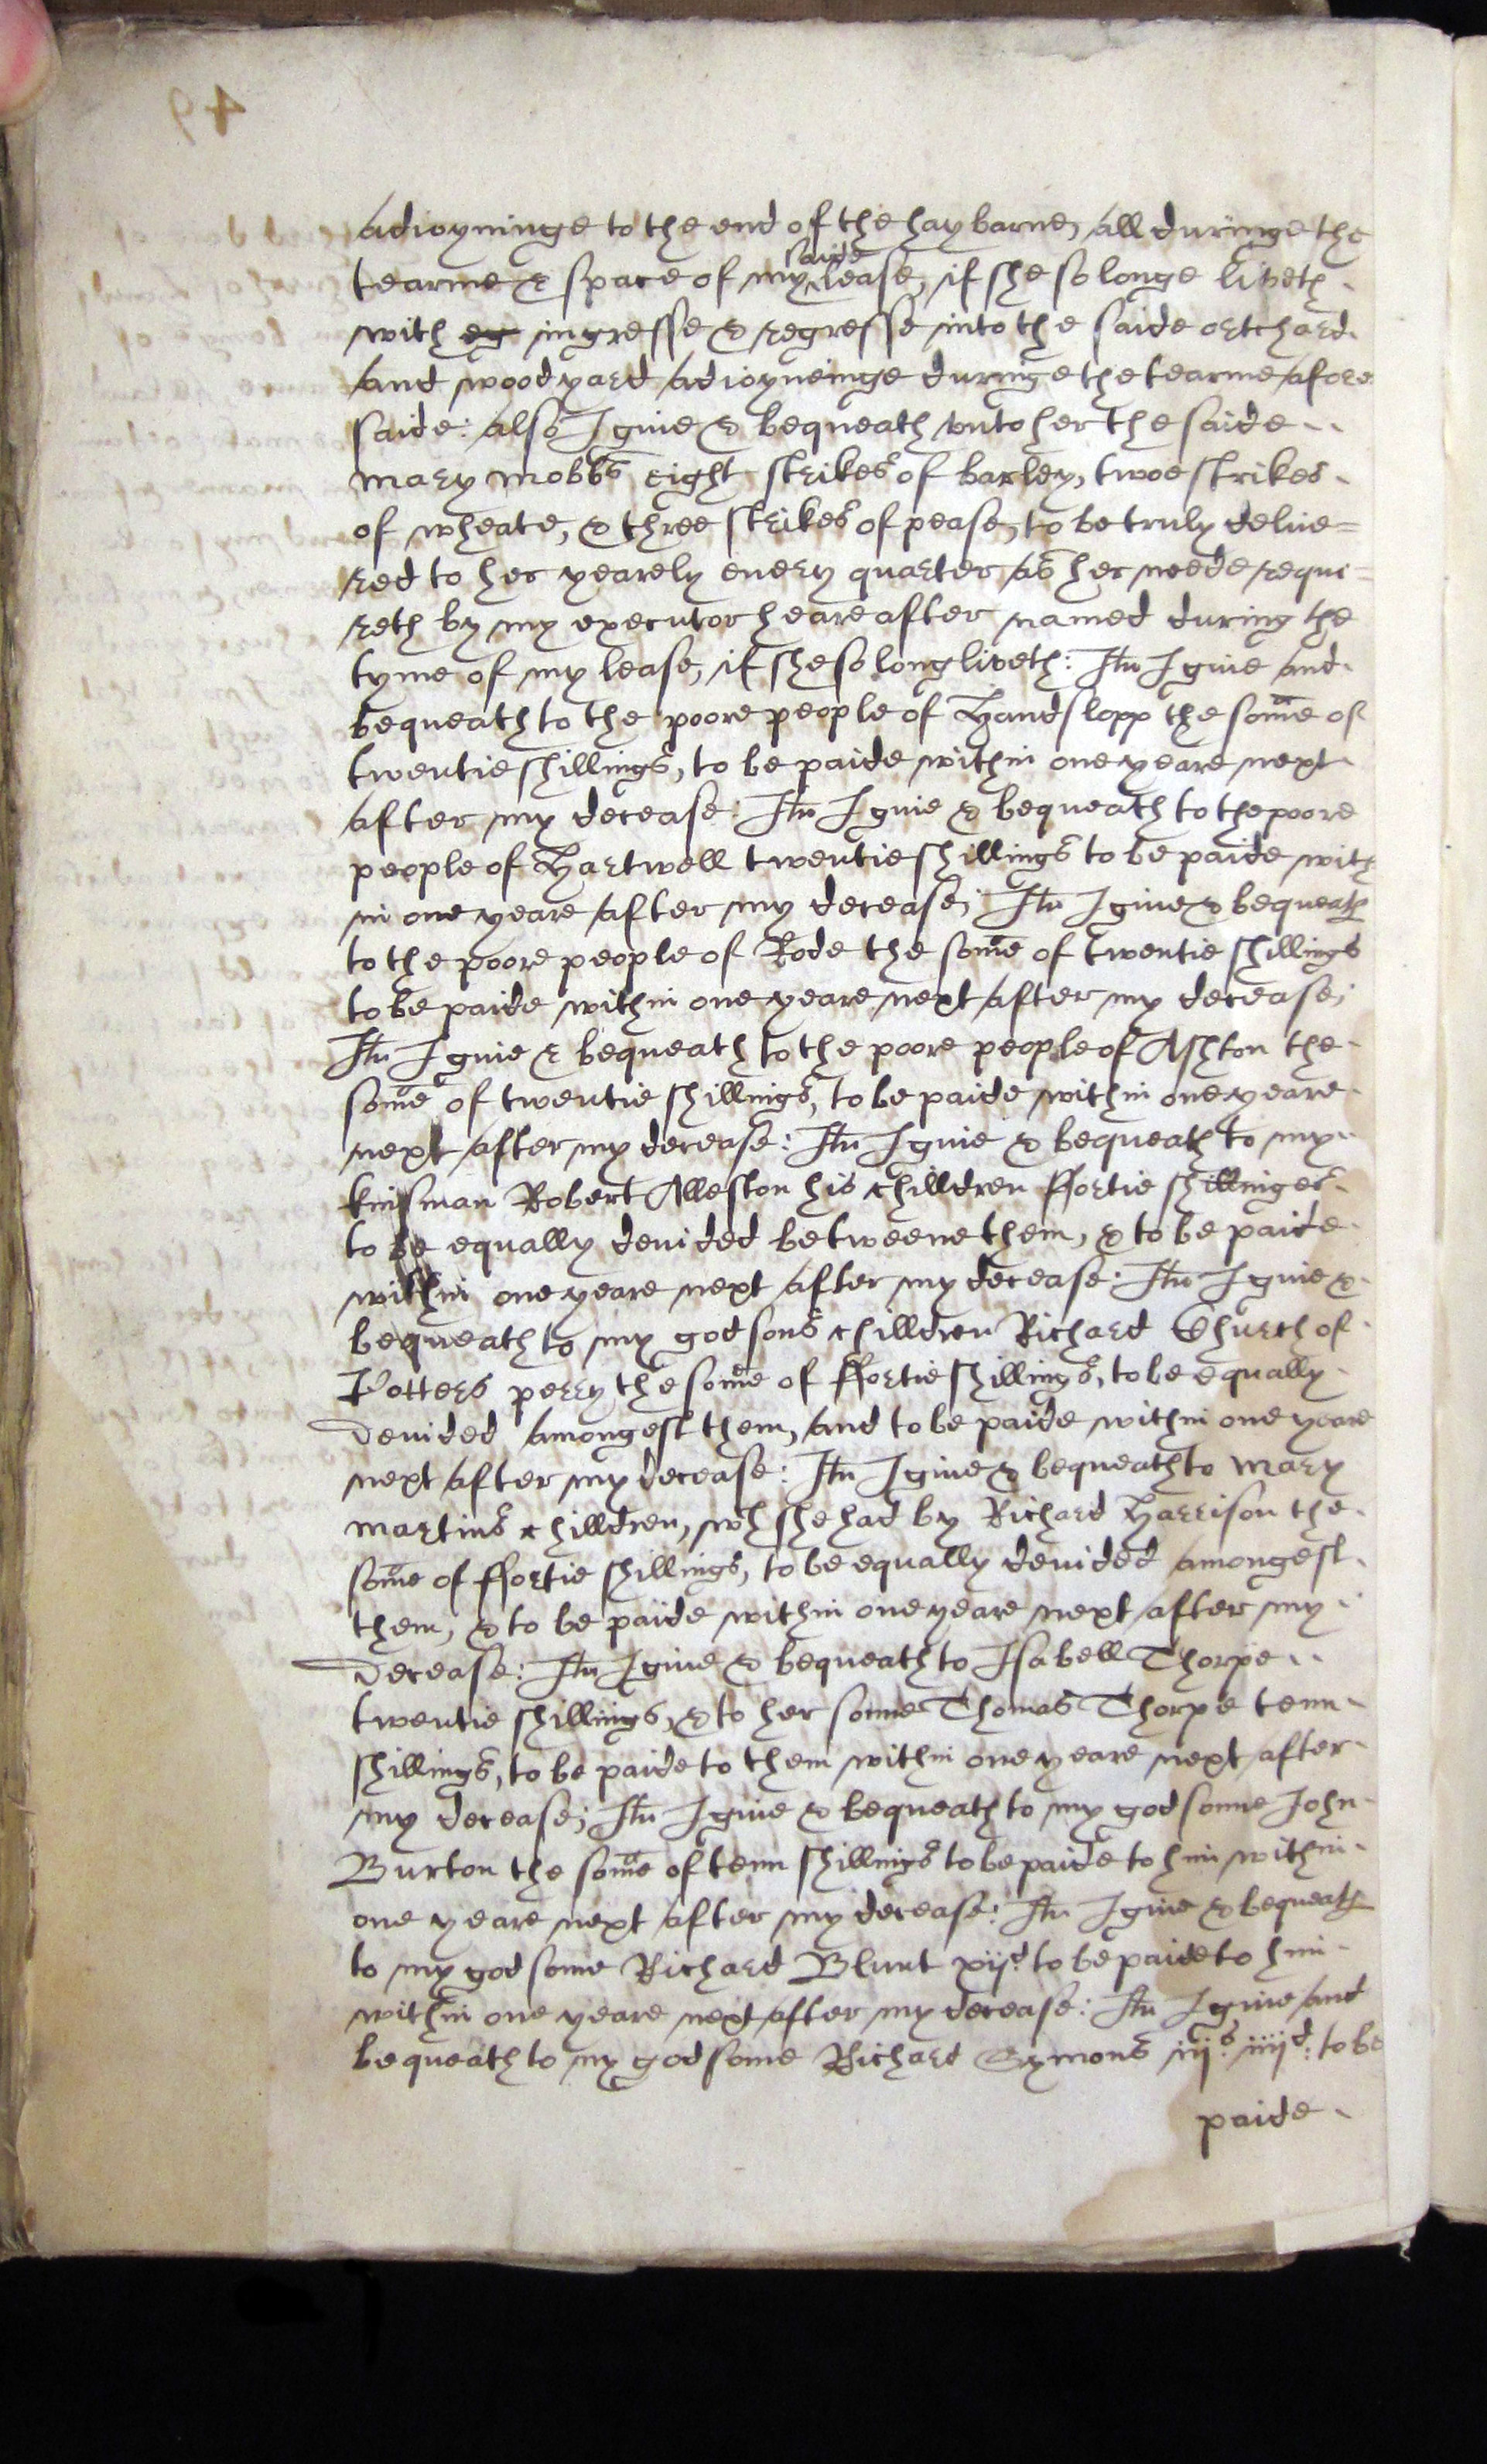 adioyninge to the end of the hay barne, all duringe the
saide
tearme & space of my lease, if she so longe liveth
with eg ingresse & regresse into the saide ortchard
and woodyard adioyneinge duringe the tearme afore
saide: also I giue & bequeath vnto her the saide
Mary Mobbs eight strikes of barley, twoe strikes
of wheate, & three strikes of pease, to be truly deliue=
red to her yearely euery quarter as her neede requi=
reth by my executor heareafter named during the
tyme of my lease, if she so long liveth: Itm I giue and
bequeath to the poore people of Handslopp the some of
twentie shillings, to be paide within one yeare next
after my decease: Itm I giue & bequeath to the poore
people of Hartwell twentie shillings to be paide with
in one yeare after my decease; Itm I giue & bequeath
to the poore people of Rode the some of twentie shillings
to be paide within one yeare next after my decease;
Itm I giue & bequeath to the poore people of Ashton the
some of twentie shillings, to be paide within one yeare
next after my decease: Itm I giue & bequeath to my
kinsman Robert Alleston his chilldren ffortie shillinges
to be equally deuided betweene them, & to be paide
within one yeare next after my decease: Itm I giue &
bequeath to my godsons chilldren Richard Church of
Potters perry the some of ffortie shillings, to be equally
deuided amongest them, and to be paide within one yeare
next after my decease: Itm I giue & bequeath to Mary
Martins chilldren, wh she had by Richard Harrison the
some of ffortie shillings, to be equally deuided amongest
them, & to be paide within one yeare next after my
decease: Itm I giue & bequeath to Isabell Thorpe
twentie shillings, & to her sonne Thomas Thorpe tenn
shillings, to be paide to them within one yeare next after
my decease; Itm I giue & bequeath to my godsonne John
Burton the some of tenn shillings to be paide to him within
one yeare next after my decease: Itm I giue & bequeath
to my godsonne Richard Blunt xijd. to be paide to him
within one yeare next after my decease: Itm I giue and
bequeath to my godsonne Richard Symons iijs. iiijd: to be
paide